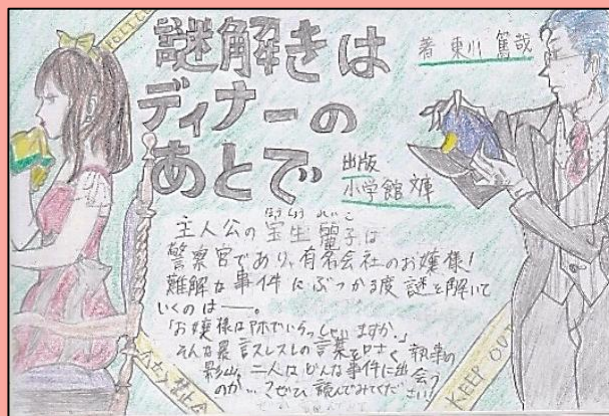 POLICE
謎解きは
ディナーの
あとで
著 東川 篤哉
出版
小学館文庫
ほうしょう れいこ
主人公の宝生麗子は
警察官であり、有名会社のお嬢様！
難解な事件にぶつかる度謎を解いて
いくのは――。
「お嬢様は
いらっしゃいますか。」
そんな暴言スレスレの言葉を 執事の
影山。二人はどんな事件に出会う
のか…？ぜひ読んでみてください！
立入禁止
KEEP OUT